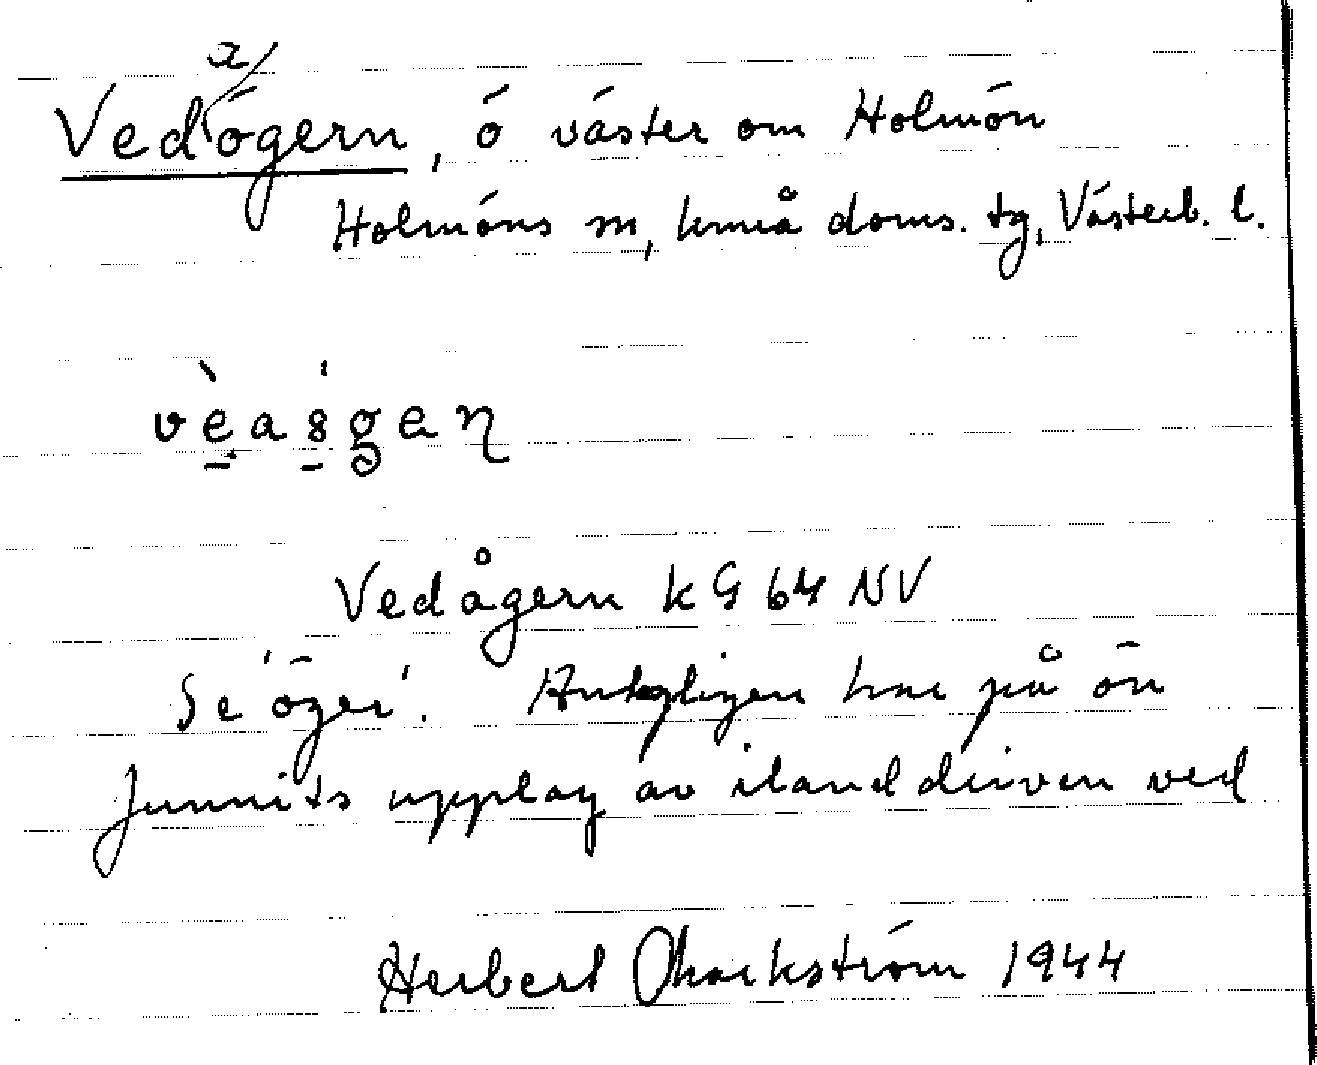 Vedaögern, ö väster om Holmön
Holmöns sn, Umeå doms. tg, Västerb. l.
Vedågern k G 64 NV
Se 'öger'. Antagligen har på ön
funnits upplag av ilanddriven ved
Herbert Markström 1944